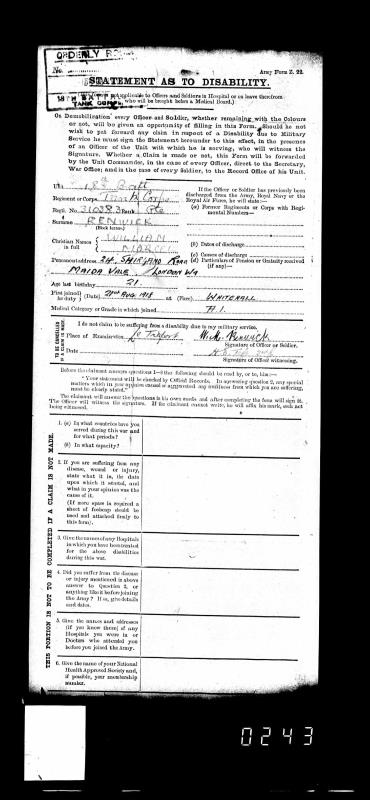 ORDERLY
No.
Army Form Z. 22.
STATEMENT AS TO DISABILITY.
(Applicable to Officers and Soldiers in Hospital or on leave therefrom
who will be brought before a Medical Board.)
18TH BATT
TANK CORPS
On Demobilization every Officer and Soldier, whether remaining with the Colours
or not, will be given an opportunity of filling in this Form. Should he not
wish to put forward any claim in respect of a Disability due to Military
Service he must sign the Statement hereunder to this effect, in the presence
of an Officer of the Unit with which he is serving, who will witness the
Signature. Whether a Claim is made or not, this Form will be forwarded
by the Unit Commander, in the case of every Officer, direct to the Secretary,
War Office; and in the case of every Soldier, to the Record Office of his Unit.
Unit 18th Batt
Regiment or Corps Tank Corps
Regtl. No. 310383 Rank Pte
Surname RENWICK
(Block letters)
Christian Names in full WILLIAM
Permanent address 24, SHIRLAND ROAD
MAIDA VALE LONDON W9
Age last birthday 21.
If the Officer or Soldier has previously been
discharged from the Army, Royal Navy or the
Royal Air Force, he will state:—
(a) Former Regiments or Corps with Regi-
mental Numbers
(b) Dates of discharge
(c) Causes of discharge
(d) Particulars of Pension or Gratuity received
(if any)
First joined for duty (Date) 21st Aug. 1918 at (Place) WHITEHALL
Medical Category or Grade in which joined A.1.
TO BE COMPLETED IF A CLAIM IS NOT MADE.
I do not claim to be suffering from a disability due to my military service.
Place of Examination Le Tréport
Renwick
Signature of Officer or Soldier.
Date
Signature of Officer witnessing.
Before the claimant answers questions 1—6 the following should be read by, or to, him:—
"Your statement will be checked by Official Records. In answering question 2, any special
matters which in your opinion caused or aggravated any condition from which you are suffering,
must be clearly stated."
The claimant will answer the questions in his own words and after completing the form will sign it.
The Officer will witness the signature. If the claimant cannot write, he will affix his mark, such act
being witnessed.
THIS PORTION IS NOT TO BE COMPLETED IF A CLAIM IS NOT MADE.
1. (a) In what countries have you
served during this war and
for what periods?
(b) In what capacity?
2. If you are suffering from any
disease, wound or injury,
state what it is, the date
upon which it started, and
what in your opinion was the
cause of it.
(If more space is required a
sheet of foolscap should be
used and attached firmly to
this form).
3. Give the names of any Hospitals
in which you have been treated
for the above disabilities
during this war.
4. Did you suffer from the disease
or injury mentioned in above
answer to Question 2, or
anything like it before joining
the Army? If so, give details
and dates.
5. Give the names and addresses
(if you know them) of any
Hospitals you were in or
Doctors who attended you
before you joined the Army.
6. Give the name of your National
Health Approved Society and,
if possible, your membership
number.
0243